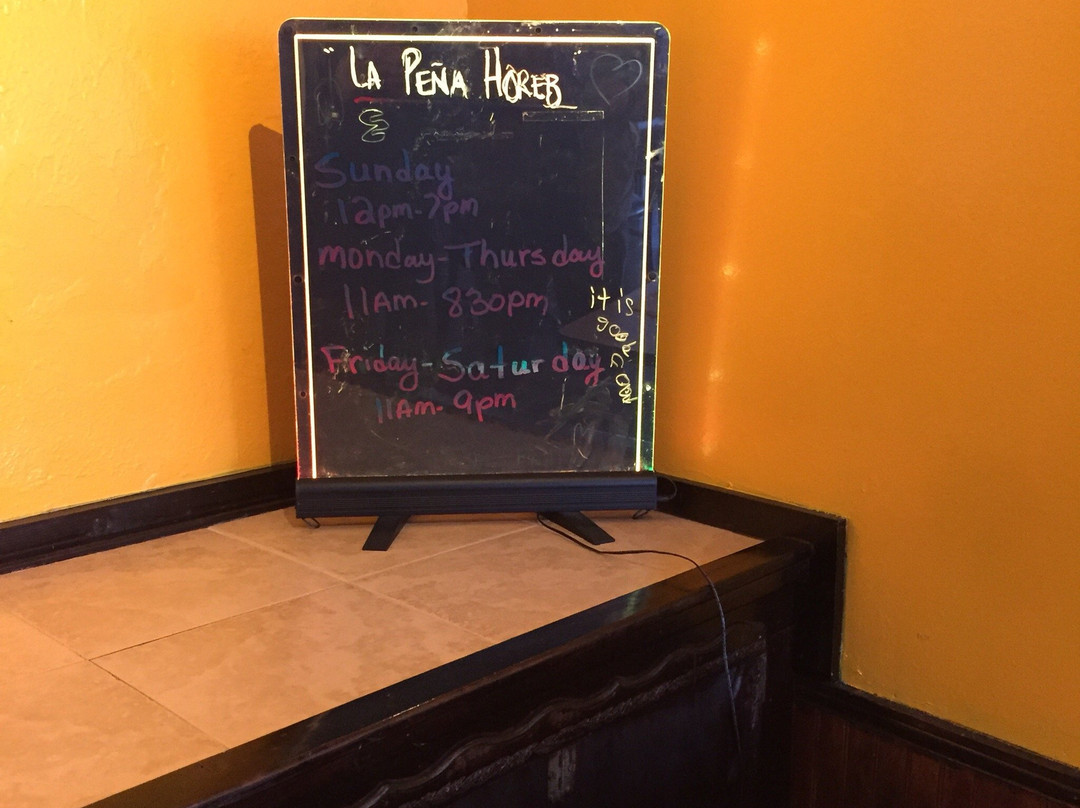 "LA PEÑA HOREB
Sunday
12pm-7pm
Monday-Thursday
11AM-830pm
Friday-Saturday
11AM-9pm
it is